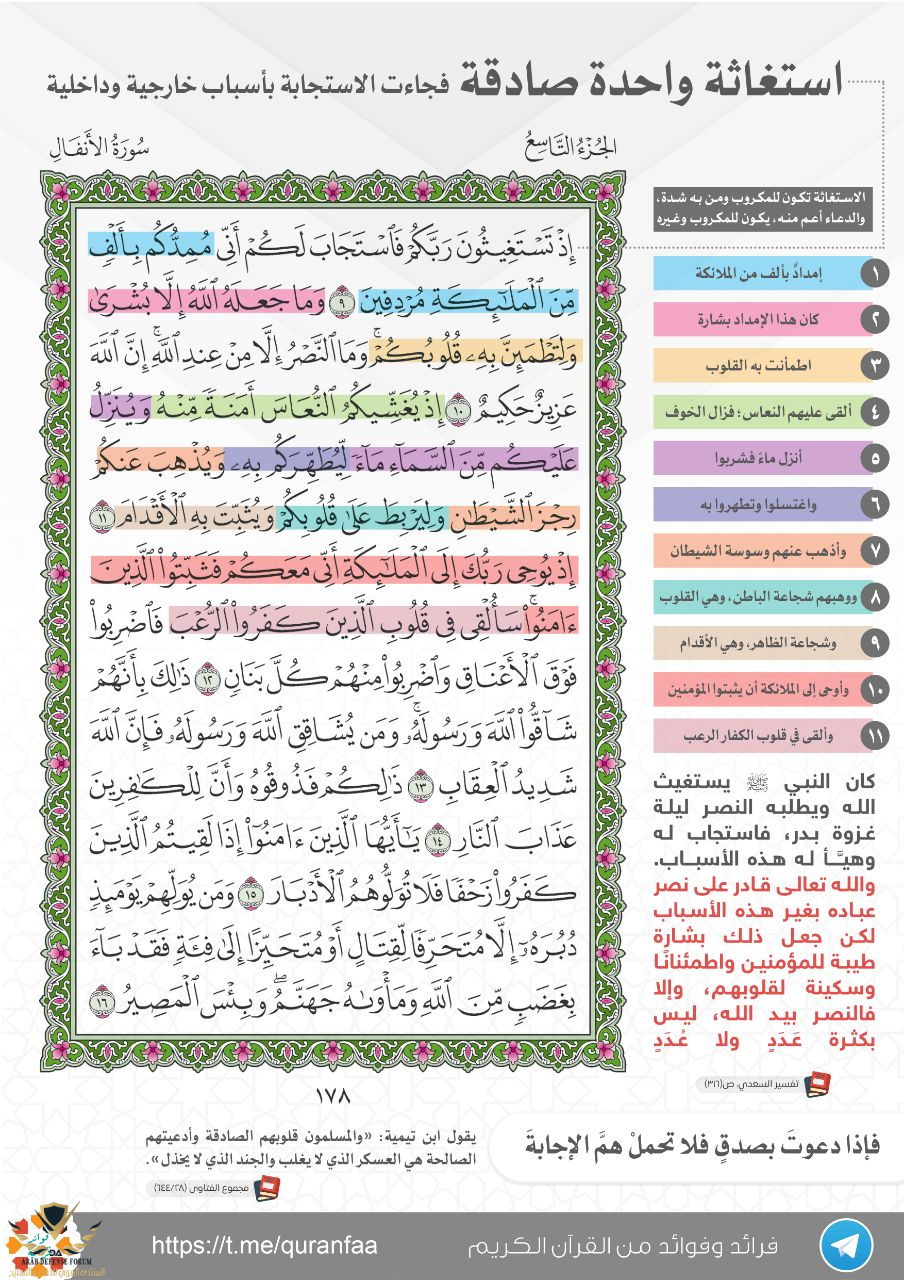 استغاثة واحدة صادقة فجاءت الاستجابة بأسباب خارجية وداخلية
الجُزْءُ التَّاسِعُ
سُورَةُ الأَنفَالِ
إِذْ تَسْتَغِيثُونَ رَبَّكُمْ فَٱسْتَجَابَ لَكُمْ أَنِّى مُمِدُّكُم بِأَلْفٍ
مِّنَ ٱلْمَلَـٰٓئِكَةِ مُرْدِفِينَ ٩ وَمَا جَعَلَهُ ٱللَّهُ إِلَّا بُشْرَىٰ
وَلِتَطْمَئِنَّ بِهِۦ قُلُوبُكُمْ ۚ وَمَا ٱلنَّصْرُ إِلَّا مِنْ عِندِ ٱللَّهِ ۚ إِنَّ ٱللَّهَ
عَزِيزٌ حَكِيمٌ ١٠ إِذْ يُغَشِّيكُمُ ٱلنُّعَاسَ أَمَنَةً مِّنْهُ وَيُنَزِّلُ
عَلَيْكُم مِّنَ ٱلسَّمَآءِ مَآءً لِّيُطَهِّرَكُم بِهِۦ وَيُذْهِبَ عَنكُمْ
رِجْزَ ٱلشَّيْطَـٰنِ وَلِيَرْبِطَ عَلَىٰ قُلُوبِكُمْ وَيُثَبِّتَ بِهِ ٱلْأَقْدَامَ ١١
إِذْ يُوحِى رَبُّكَ إِلَى ٱلْمَلَـٰٓئِكَةِ أَنِّى مَعَكُمْ فَثَبِّتُوا۟ ٱلَّذِينَ
ءَامَنُوا۟ ۚ سَأُلْقِى فِى قُلُوبِ ٱلَّذِينَ كَفَرُوا۟ ٱلرُّعْبَ فَٱضْرِبُوا۟
فَوْقَ ٱلْأَعْنَاقِ وَٱضْرِبُوا۟ مِنْهُمْ كُلَّ بَنَانٍ ١٢ ذَٰلِكَ بِأَنَّهُمْ
شَآقُّوا۟ ٱللَّهَ وَرَسُولَهُۥ ۚ وَمَن يُشَاقِقِ ٱللَّهَ وَرَسُولَهُۥ فَإِنَّ ٱللَّهَ
شَدِيدُ ٱلْعِقَابِ ١٣ ذَٰلِكُمْ فَذُوقُوهُ وَأَنَّ لِلْكَـٰفِرِينَ
عَذَابَ ٱلنَّارِ ١٤ يَـٰٓأَيُّهَا ٱلَّذِينَ ءَامَنُوٓا۟ إِذَا لَقِيتُمُ ٱلَّذِينَ
كَفَرُوا۟ زَحْفًا فَلَا تُوَلُّوهُمُ ٱلْأَدْبَارَ ١٥ وَمَن يُوَلِّهِمْ يَوْمَئِذٍ
دُبُرَهُۥٓ إِلَّا مُتَحَرِّفًا لِّقِتَالٍ أَوْ مُتَحَيِّزًا إِلَىٰ فِئَةٍ فَقَدْ بَآءَ
بِغَضَبٍ مِّنَ ٱللَّهِ وَمَأْوَىٰهُ جَهَنَّمُ ۖ وَبِئْسَ ٱلْمَصِيرُ ١٦
١٧٨
الاستغاثة تكون للمكروب ومن به شدة،
والدعاء أعم منه، يكون للمكروب وغيره
١ إمدادٌ بألف من الملائكة
٢ كان هذا الإمداد بشارة
٣ اطمأنت به القلوب
٤ ألقى عليهم النعاس؛ فزال الخوف
٥ أنزل ماءً فشربوا
٦ واغتسلوا وتطهروا به
٧ وأذهب عنهم وسوسة الشيطان
٨ ووهبهم شجاعة الباطن، وهي القلوب
٩ وشجاعة الظاهر، وهي الأقدام
١٠ وأوحى إلى الملائكة أن يثبتوا المؤمنين
١١ وألقى في قلوب الكفار الرعب
كان النبي ﷺ يستغيث
الله ويطلبه النصر ليلة
غزوة بدر، فاستجاب له
وهيَّأ له هذه الأسباب.
والله تعالى قادر على نصر
عباده بغير هذه الأسباب
لكن جعل ذلك بشارة
طيبة للمؤمنين واطمئنانًا
وسكينة لقلوبهم، وإلا
فالنصر بيد الله، ليس
بكثرة عَدَدٍ ولا عُدَدٍ
تفسير السعدي، ص(٣١٦)
فإذا دعوتَ بصدقٍ فلا تحملْ همَّ الإجابة
يقول ابن تيمية: «والمسلمون قلوبهم الصادقة وأدعيتهم
الصالحة هي العسكر الذي لا يغلب والجند الذي لا يخذل».
مجموع الفتاوى (٦٤٤/٢٨)
فرائد وفوائد من القرآن الكريم
https://t.me/quranfaa
فوائد
ARAB DEFENSE FORUM